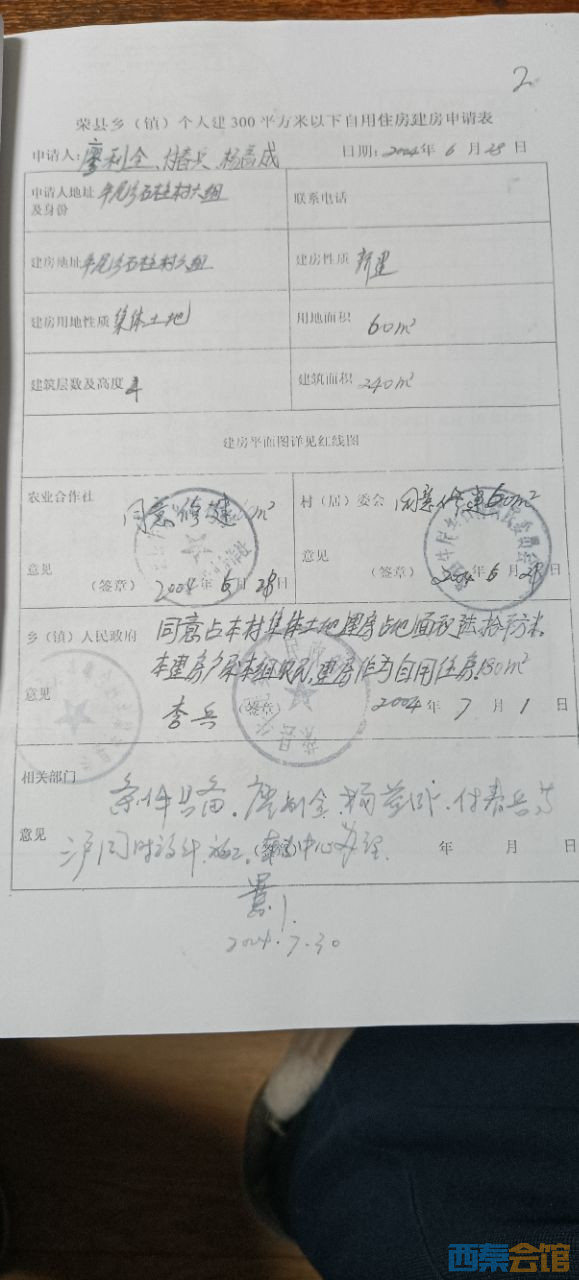 2
荣县乡（镇）个人建300平方米以下自用住房建房申请表
申请人：廖利全、付春兵、杨 成 日期：2004年6月28日
申请人地址及身份 牟尾乡石柱村六组 联系电话
建房地址 牟尾乡石柱村六组 建房性质 新建
建房用地性质 集体土地 用地面积 60m²
建筑层数及高度 4 建筑面积 240m²
建房平面图详见红线图
农业合作社 同意修建 m² 村（居）委会 同意修建60m²
意见 （签章）2004年6月28日 意见 （签章）2004年6月28日
乡（镇）人民政府 同意占本村集体土地建房占地面积陆拾平方米。
本建房户系本组农民，建房作为自用住房180m²
意见 李兵 （签章） 2004年7月1日
相关部门 条件具备。廖利全、杨 、付春兵等
意见 三户同时设计、施工。 中心办理 （签章） 年 月 日
2004.7.30
西秦会馆